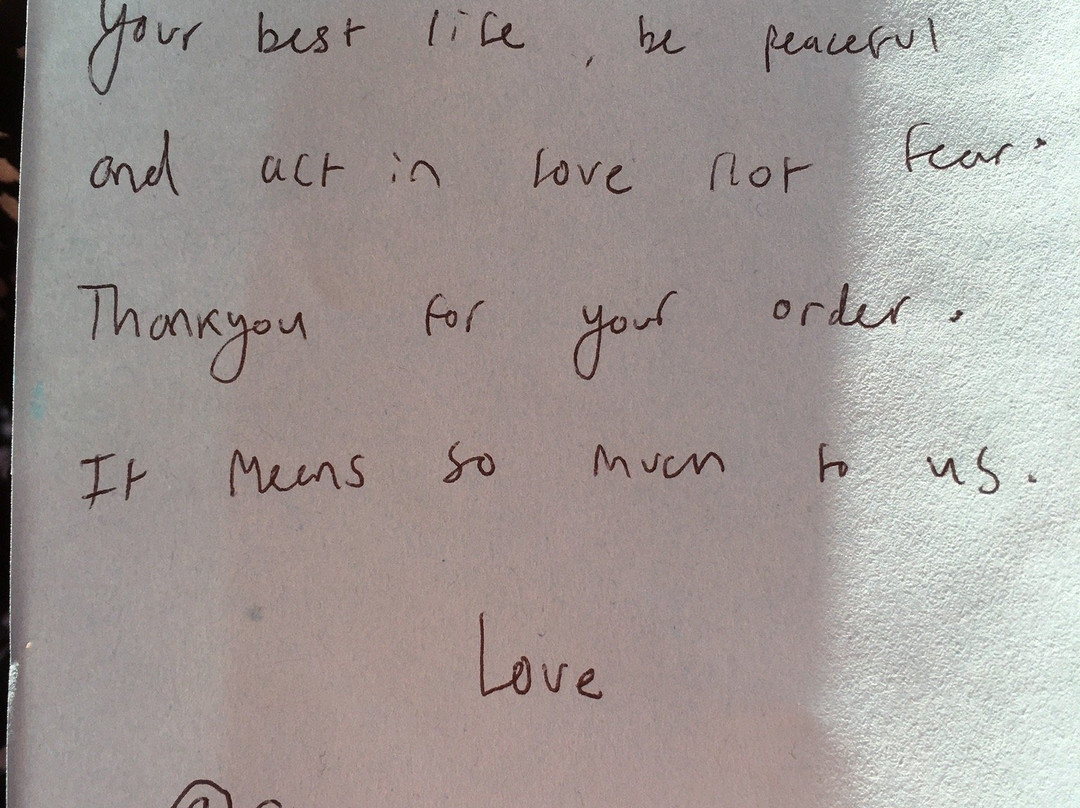 Your best life, be peaceful
and act in love not fear.
Thankyou for your order.
It means so much to us.
Love